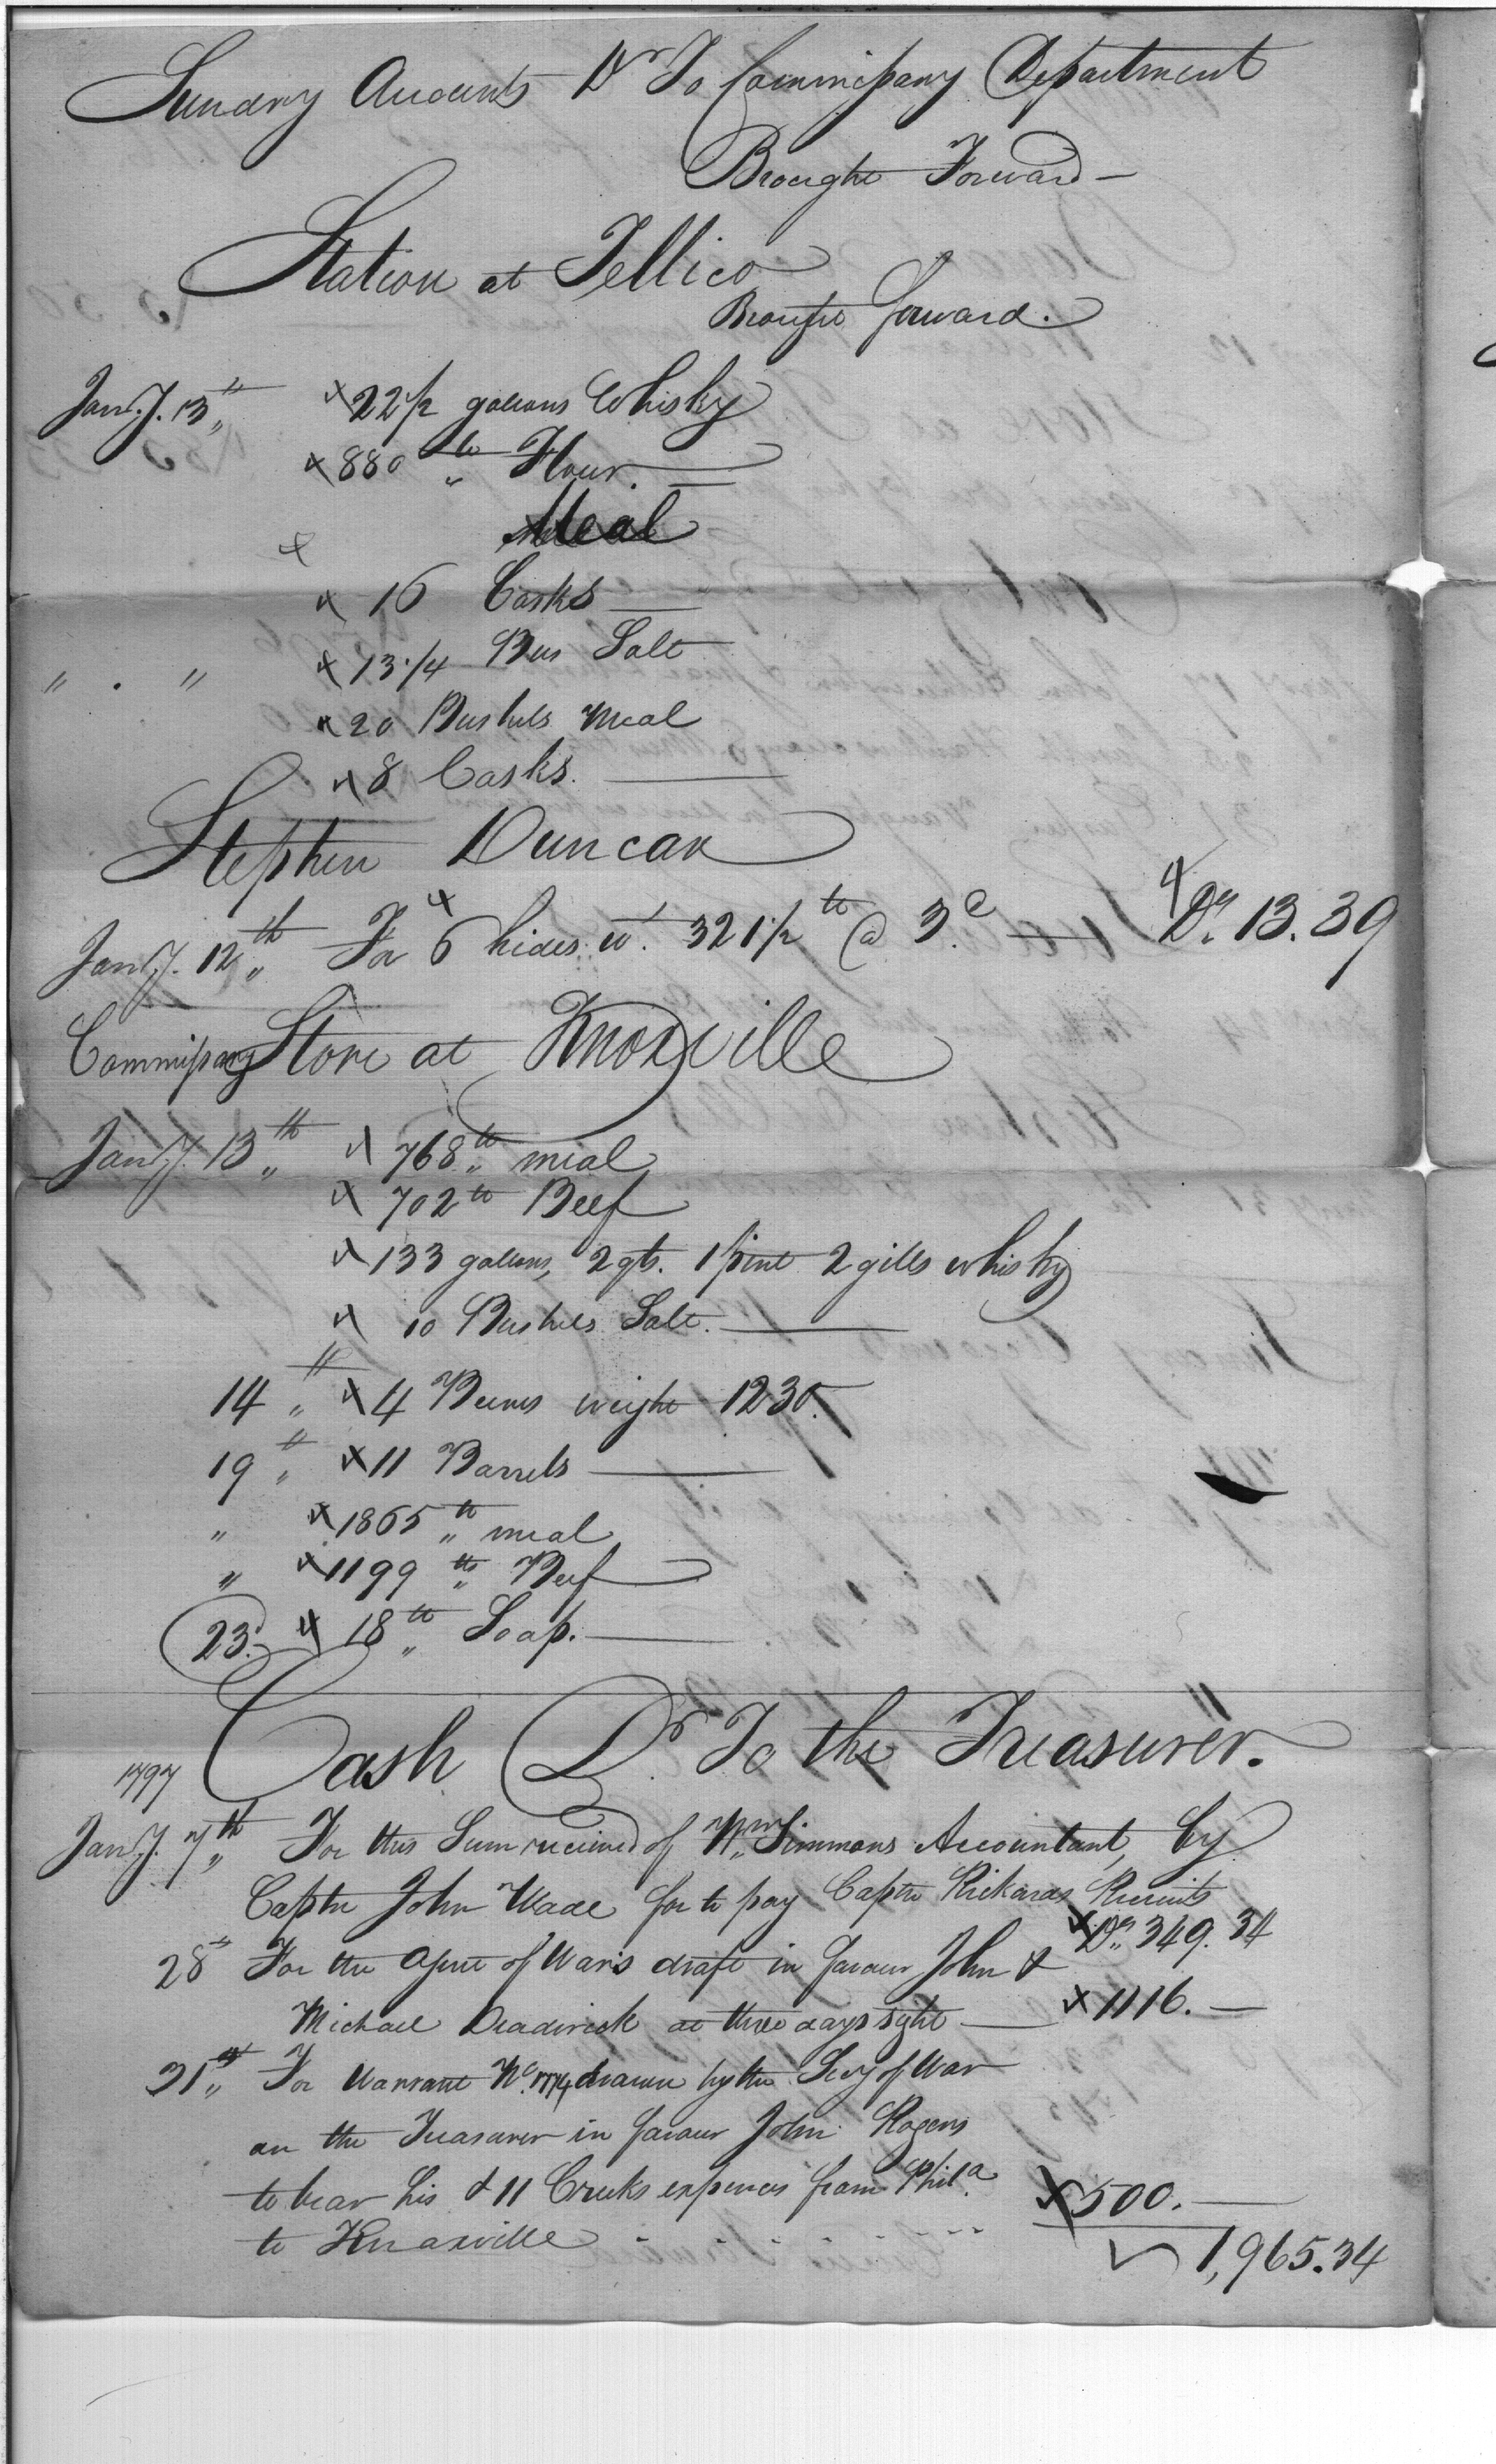 Sundry Accounts Dr To Commissary Department
Brought Forward —
Station at Tellico
Brought forward.
Jany. 13th x 22 1/2 gallons Whisky
x 880 lb Flour. —
x Meal
x 16 Casks —
" . " x 13 1/4 Bus Salt
x 20 Bushels Meal
x 8 Casks. —
Stephen Duncan
Jany. 12th For x 6 hides wt. 321 1/2 lb @ 3c. — x Drs. 13.39
Commissary Store at Knoxville
Jany. 13th x 768 lb meal
x 702 lb Beef
x 133 gallons, 2 qts. 1 pint 2 gills whisky
x 10 Bushels Salt. —
14th x 4 Beeves weight 1230.
19th x 11 Barrels —
" x 1865 lb meal
" x 1199 lb Beef
23d. x 18 lb Soap. —
Cash Dr. To the Treasurer.
1797
Jany. 7th For this Sum received of Wm. Simmons Accountant, by
Captn John Wade for to pay Captn Rickards Recruits
x Drs. 349.34
28th For the Agent of War's draft in favour John &
Michael Deadrick at three days sight — x 1116. —
31st For Warrant No. drawn by the Secy of War
on the Treasurer in favour John Rogers
to bear his & 11 Creeks expences from Phila.
to Knoxville - - - - - - x 500. —
1,965.34